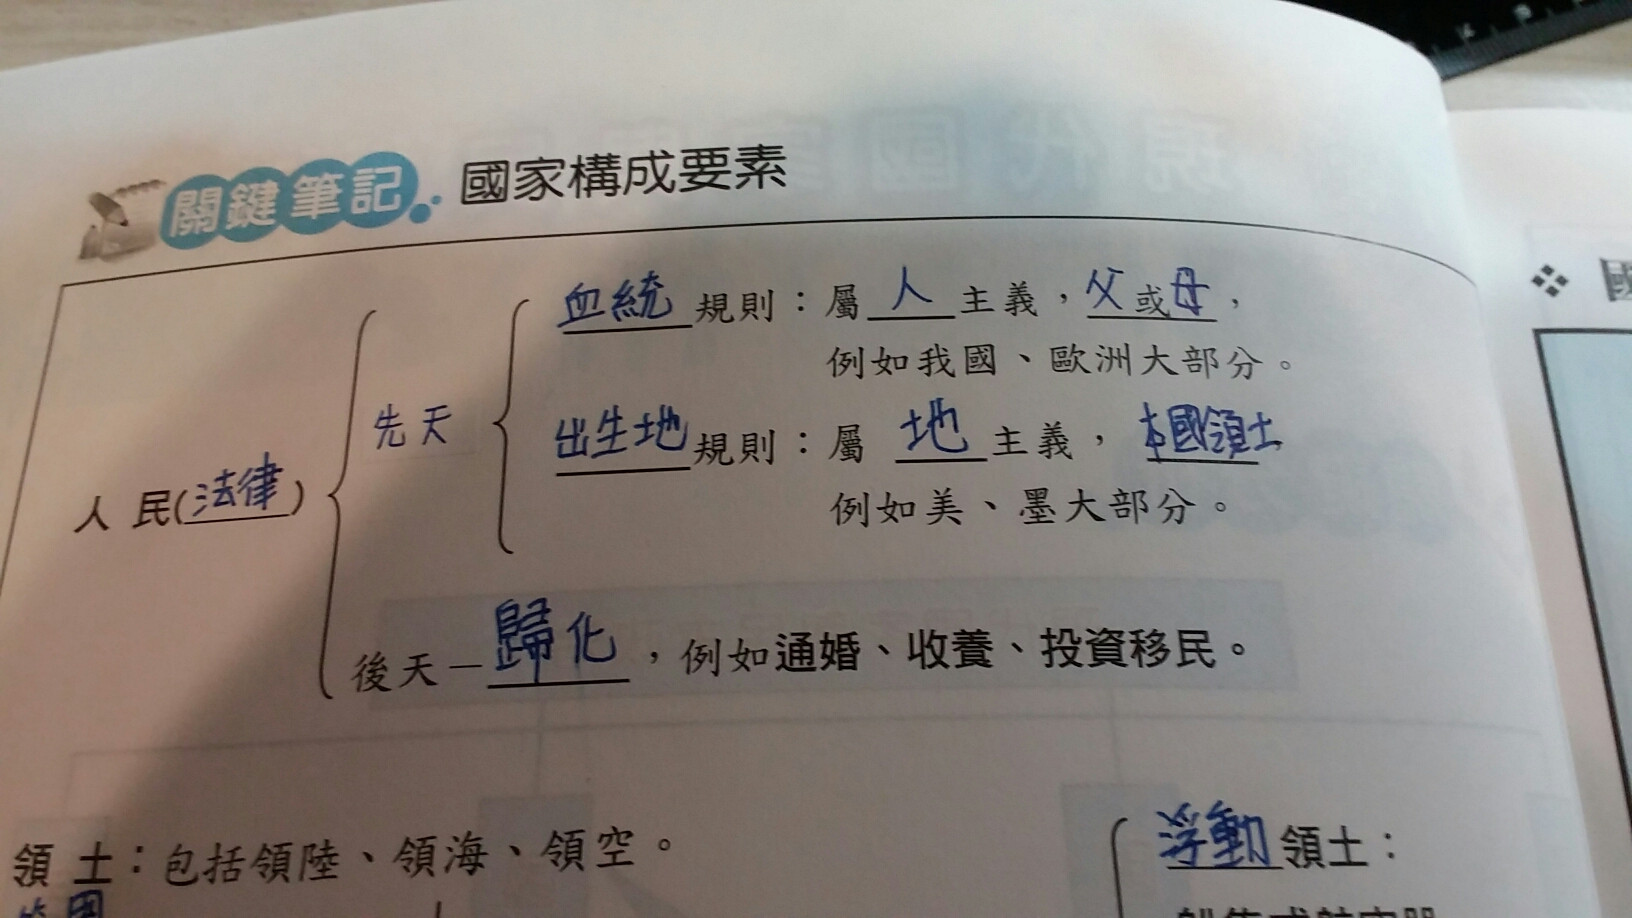 關鍵筆記 國家構成要素
血統規則：屬人主義，父或母，
例如我國、歐洲大部分。
先天
出生地規則：屬地主義，本國領土
人民(法律)
例如美、墨大部分。
後天－歸化，例如通婚、收養、投資移民。
浮動領土：
領土：包括領陸、領海、領空。